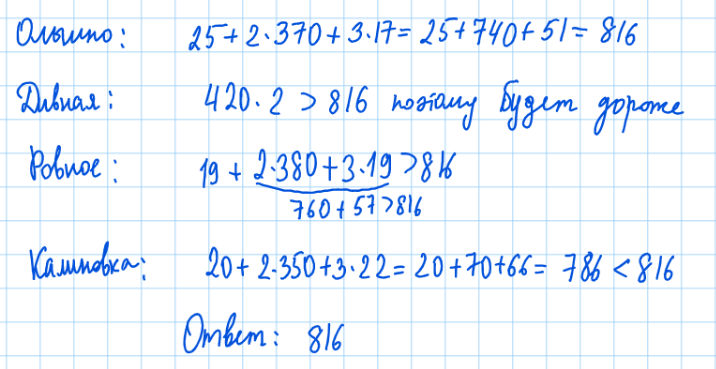 Ольшино: 25+2·370+3·17=25+740+51=816
Дивная: 420·2>816 поэтому будет дороже
Ровное: 19+2·380+3·19>816
760+57>816
Калиновка: 20+2·350+3·22=20+70+66=786<816
Ответ: 816